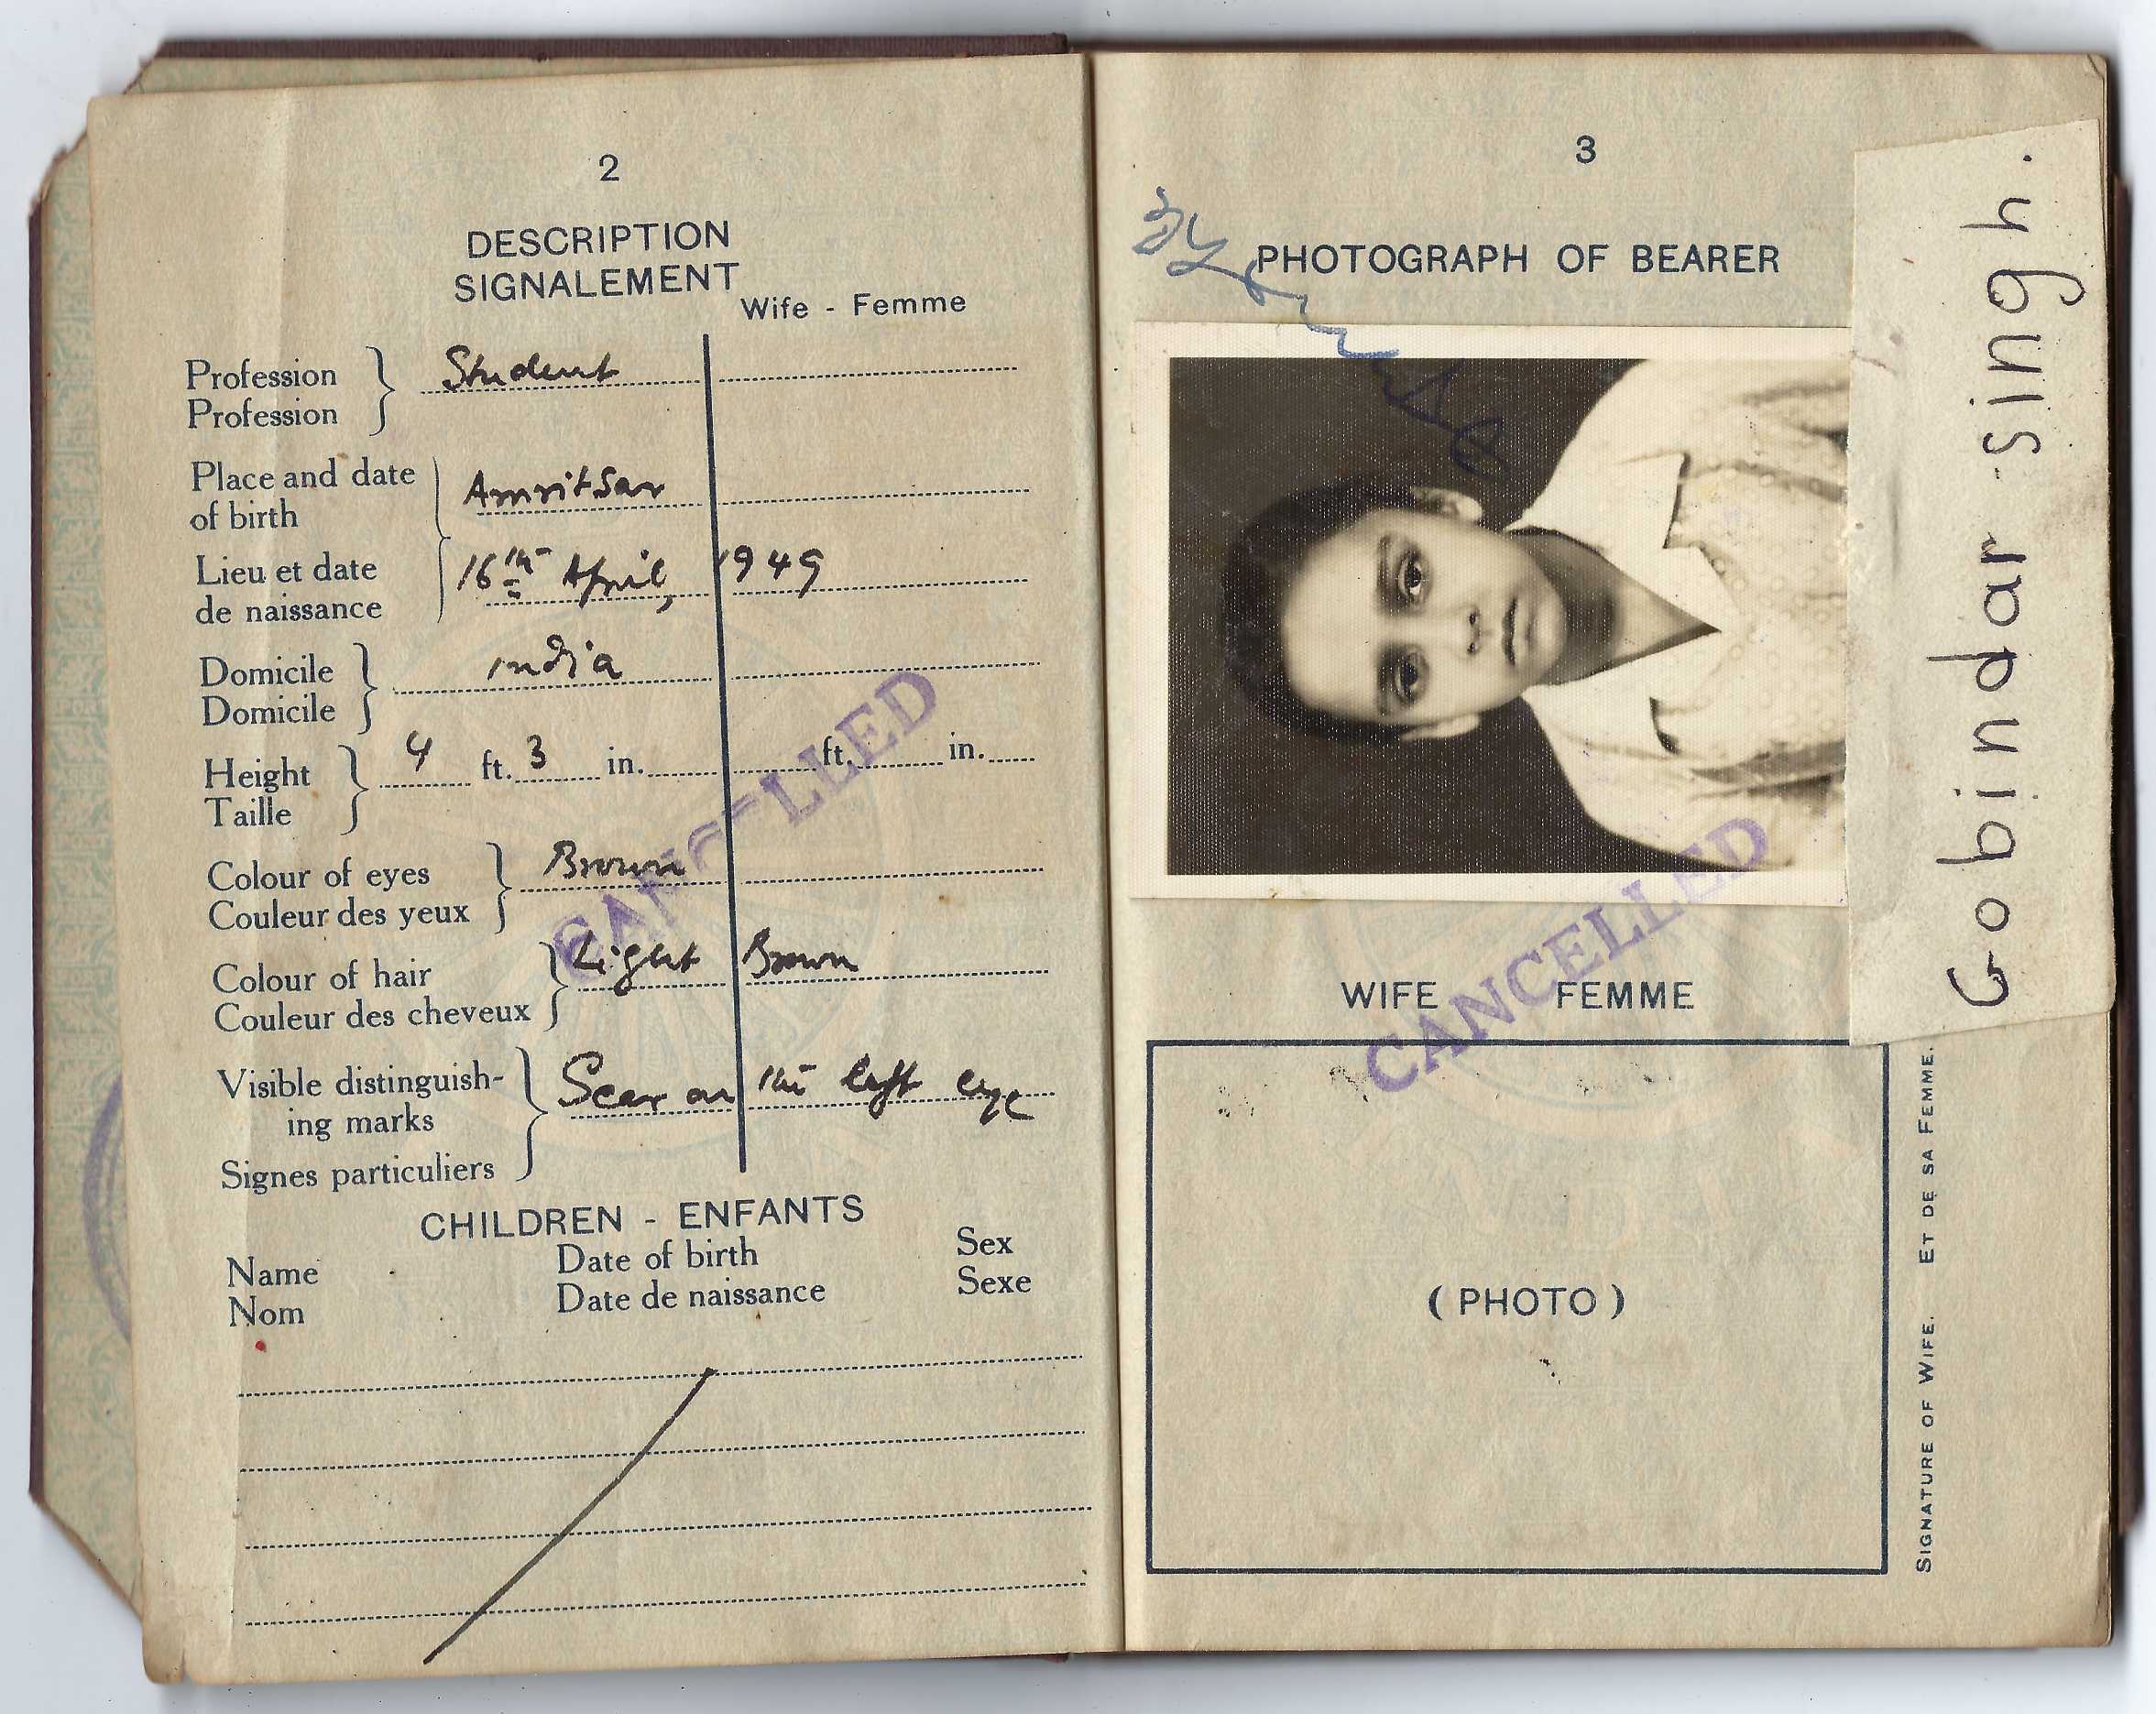 2
DESCRIPTION
SIGNALEMENT
Wife - Femme
Profession
Profession
Student
Place and date
of birth
Amritsar
Lieu et date
de naissance
16th April, 1949
Domicile
Domicile
india
Height
Taille
4 ft. 3 in. ft. in.
Colour of eyes
Couleur des yeux
Brown
Colour of hair
Couleur des cheveux
Light Brown
Visible distinguish-
ing marks
Signes particuliers
Scar on the left eye
CANCELLED
CHILDREN - ENFANTS
Name Date of birth Sex
Nom Date de naissance Sexe
3
PHOTOGRAPH OF BEARER
Gobindar singh.
CANCELLED
WIFE FEMME
(PHOTO)
SIGNATURE OF WIFE. ET DE SA FEMME.